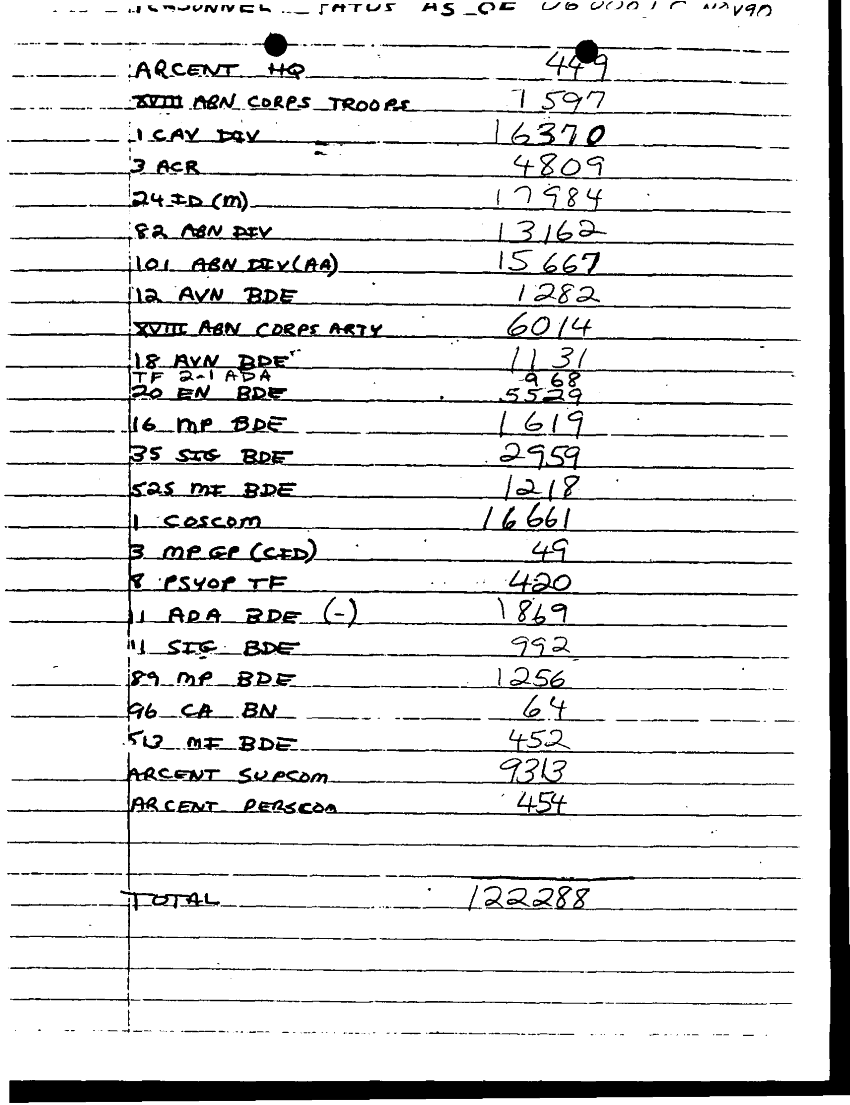 PERSONNEL STATUS AS OF NOV90
ARCENT HQ 449
XVIII ABN CORPS TROOPS 1597
1 CAV DIV 16370
3 ACR 4809
24 ID (M) 17984
82 ABN DIV 13162
101 ABN DIV (AA) 15667
12 AVN BDE 1282
XVIII ABN CORPS ARTY 6014
18 AVN BDE 1131
TF 2-1 ADA 968
20 EN BDE 5529
16 MP BDE 1619
35 SIG BDE 2959
525 MI BDE 1218
1 COSCOM 16661
3 MP GP (CID) 49
8 PSYOP TF 420
11 ADA BDE (-) 1869
11 SIG BDE 992
89 MP BDE 1256
96 CA BN 64
513 MI BDE 452
ARCENT SUPCOM 9313
ARCENT PERSCOM 454
TOTAL 122288